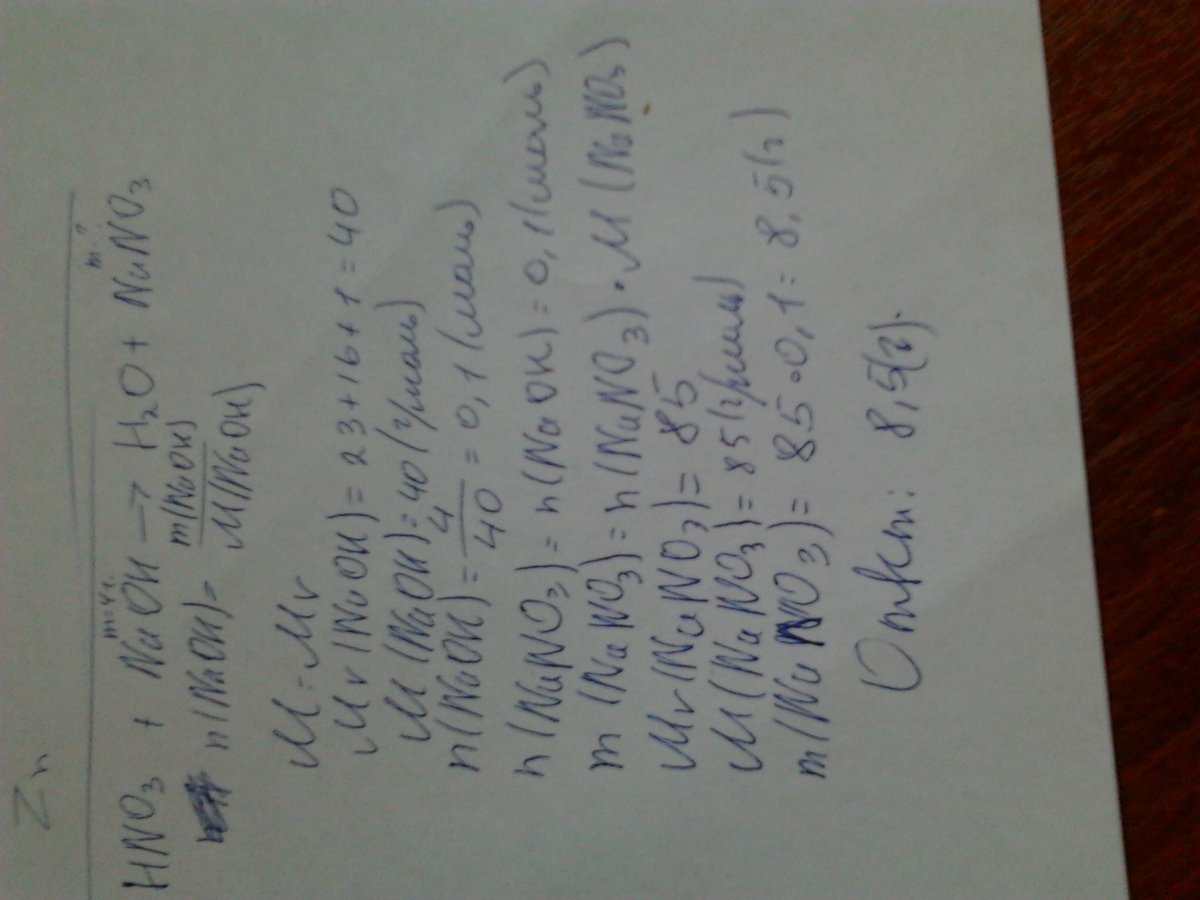 Zn
m=4г. m-?
HNO3 + NaOH → H2O + NaNO3
n(NaOH)= m(NaOH)
M(NaOH)
M=Mr
Mr(NaOH)=23+16+1=40
M(NaOH)=40(г/моль)
n(NaOH)=4/40=0,1(моль)
n(NaNO3)=n(NaOH)=0,1(моль)
m(NaNO3)=n(NaNO3)·M(NaNO3)
Mr(NaNO3)=85
M(NaNO3)=85(г/моль)
m(NaNO3)=85·0,1=8,5(г)
Ответ: 8,5(г).